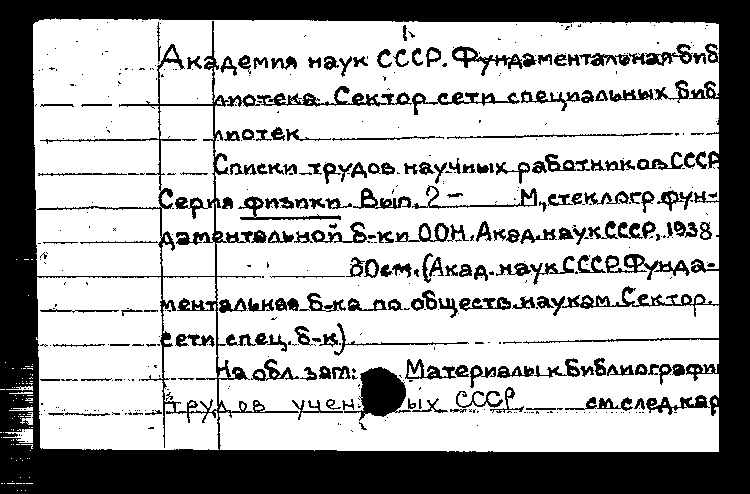 Академия наук СССР. Фундаментальная биб
лиотека. Сектор сети специальных биб
лиотек
Списки трудов научных работников СССР
Серия физики. Вып. 2 — М., стеклогр. фун-
даментальной б-ки ООН. Акад. наук СССР, 1938
30см. (Акад. наук СССР. Фунда-
ментальная б-ка по обществ. наукам. Сектор.
сети спец. б-к).
На обл. загл: Материалы к библиографии
трудов учен ых СССР. см. след. кар